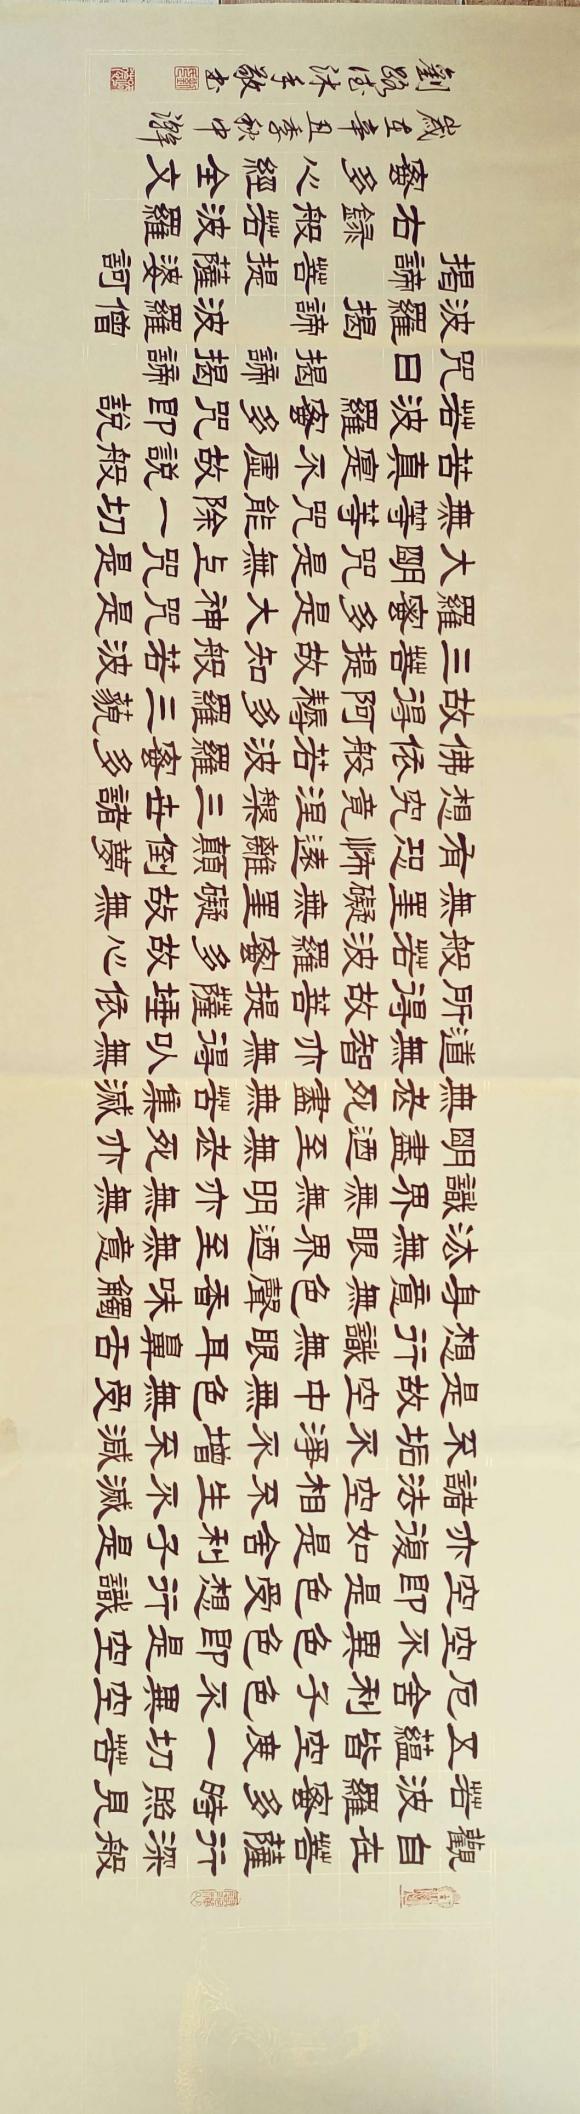 觀自在菩薩行深般
若波羅蜜多時照見
五蘊皆空度一切苦
厄舍利子色不異空
空不異色色即是空
空即是色受想行識
亦復如是舍利子是
諸法空相不生不滅
不垢不淨不增不減
是故空中無色無受
想行識無眼耳鼻舌
身意無色聲香味觸
法無眼界迺至無意
識界無無明亦無無
明盡迺至無老死亦
無老死盡無苦集滅
道無智亦無得以無
所得故菩提薩埵依
般若波羅蜜多故心
無罣礙無罣礙故無
有恐怖遠離顛倒夢
想究竟涅槃三世諸
佛依般若波羅蜜多
故得阿耨多羅三藐
三菩提故知般若波
羅蜜多是大神咒是
大明咒是無上咒是
無等等咒能除一切
苦真實不虛故說般
若波羅蜜多咒即說
咒曰 揭諦揭諦
波羅揭諦波羅僧
揭諦菩提薩婆訶
右錄般若波羅
蜜多心經全文
歲在辛丑季秋中澣
劉德沐手敬书